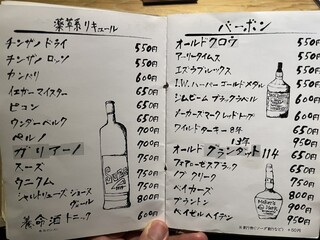 薬草系リキュール
チンザノ ドライ 550円
チンザノ ロッソ 550円
カンパリ 600円
イエガーマイスター 650円
ピコン 650円
ウンダーベルク 650円
ペルノ 700円
ガリアーノ 700円
スーズ 750円
クニクム 750円
シャルトリューズ ジョーヌ 750円
ヴェール 800円
養命酒トニック 600円
バーボン
オールドクロウ 550円
アーリータイムス 550円
エズラブルックス 550円
I.W.ハーパーゴールドメダル 550円
ジムビームブラックラベル 600円
メーカーズマークレッドトップ 600円
ワイルドターキー 8年 650円
13年 950円
オールドグランダッド114 650円
フォアローゼスブラック 650円
ノブクリーク 750円
ベイカーズ 800円
ブラントン 900円
ベイゼルヘイデン 950円